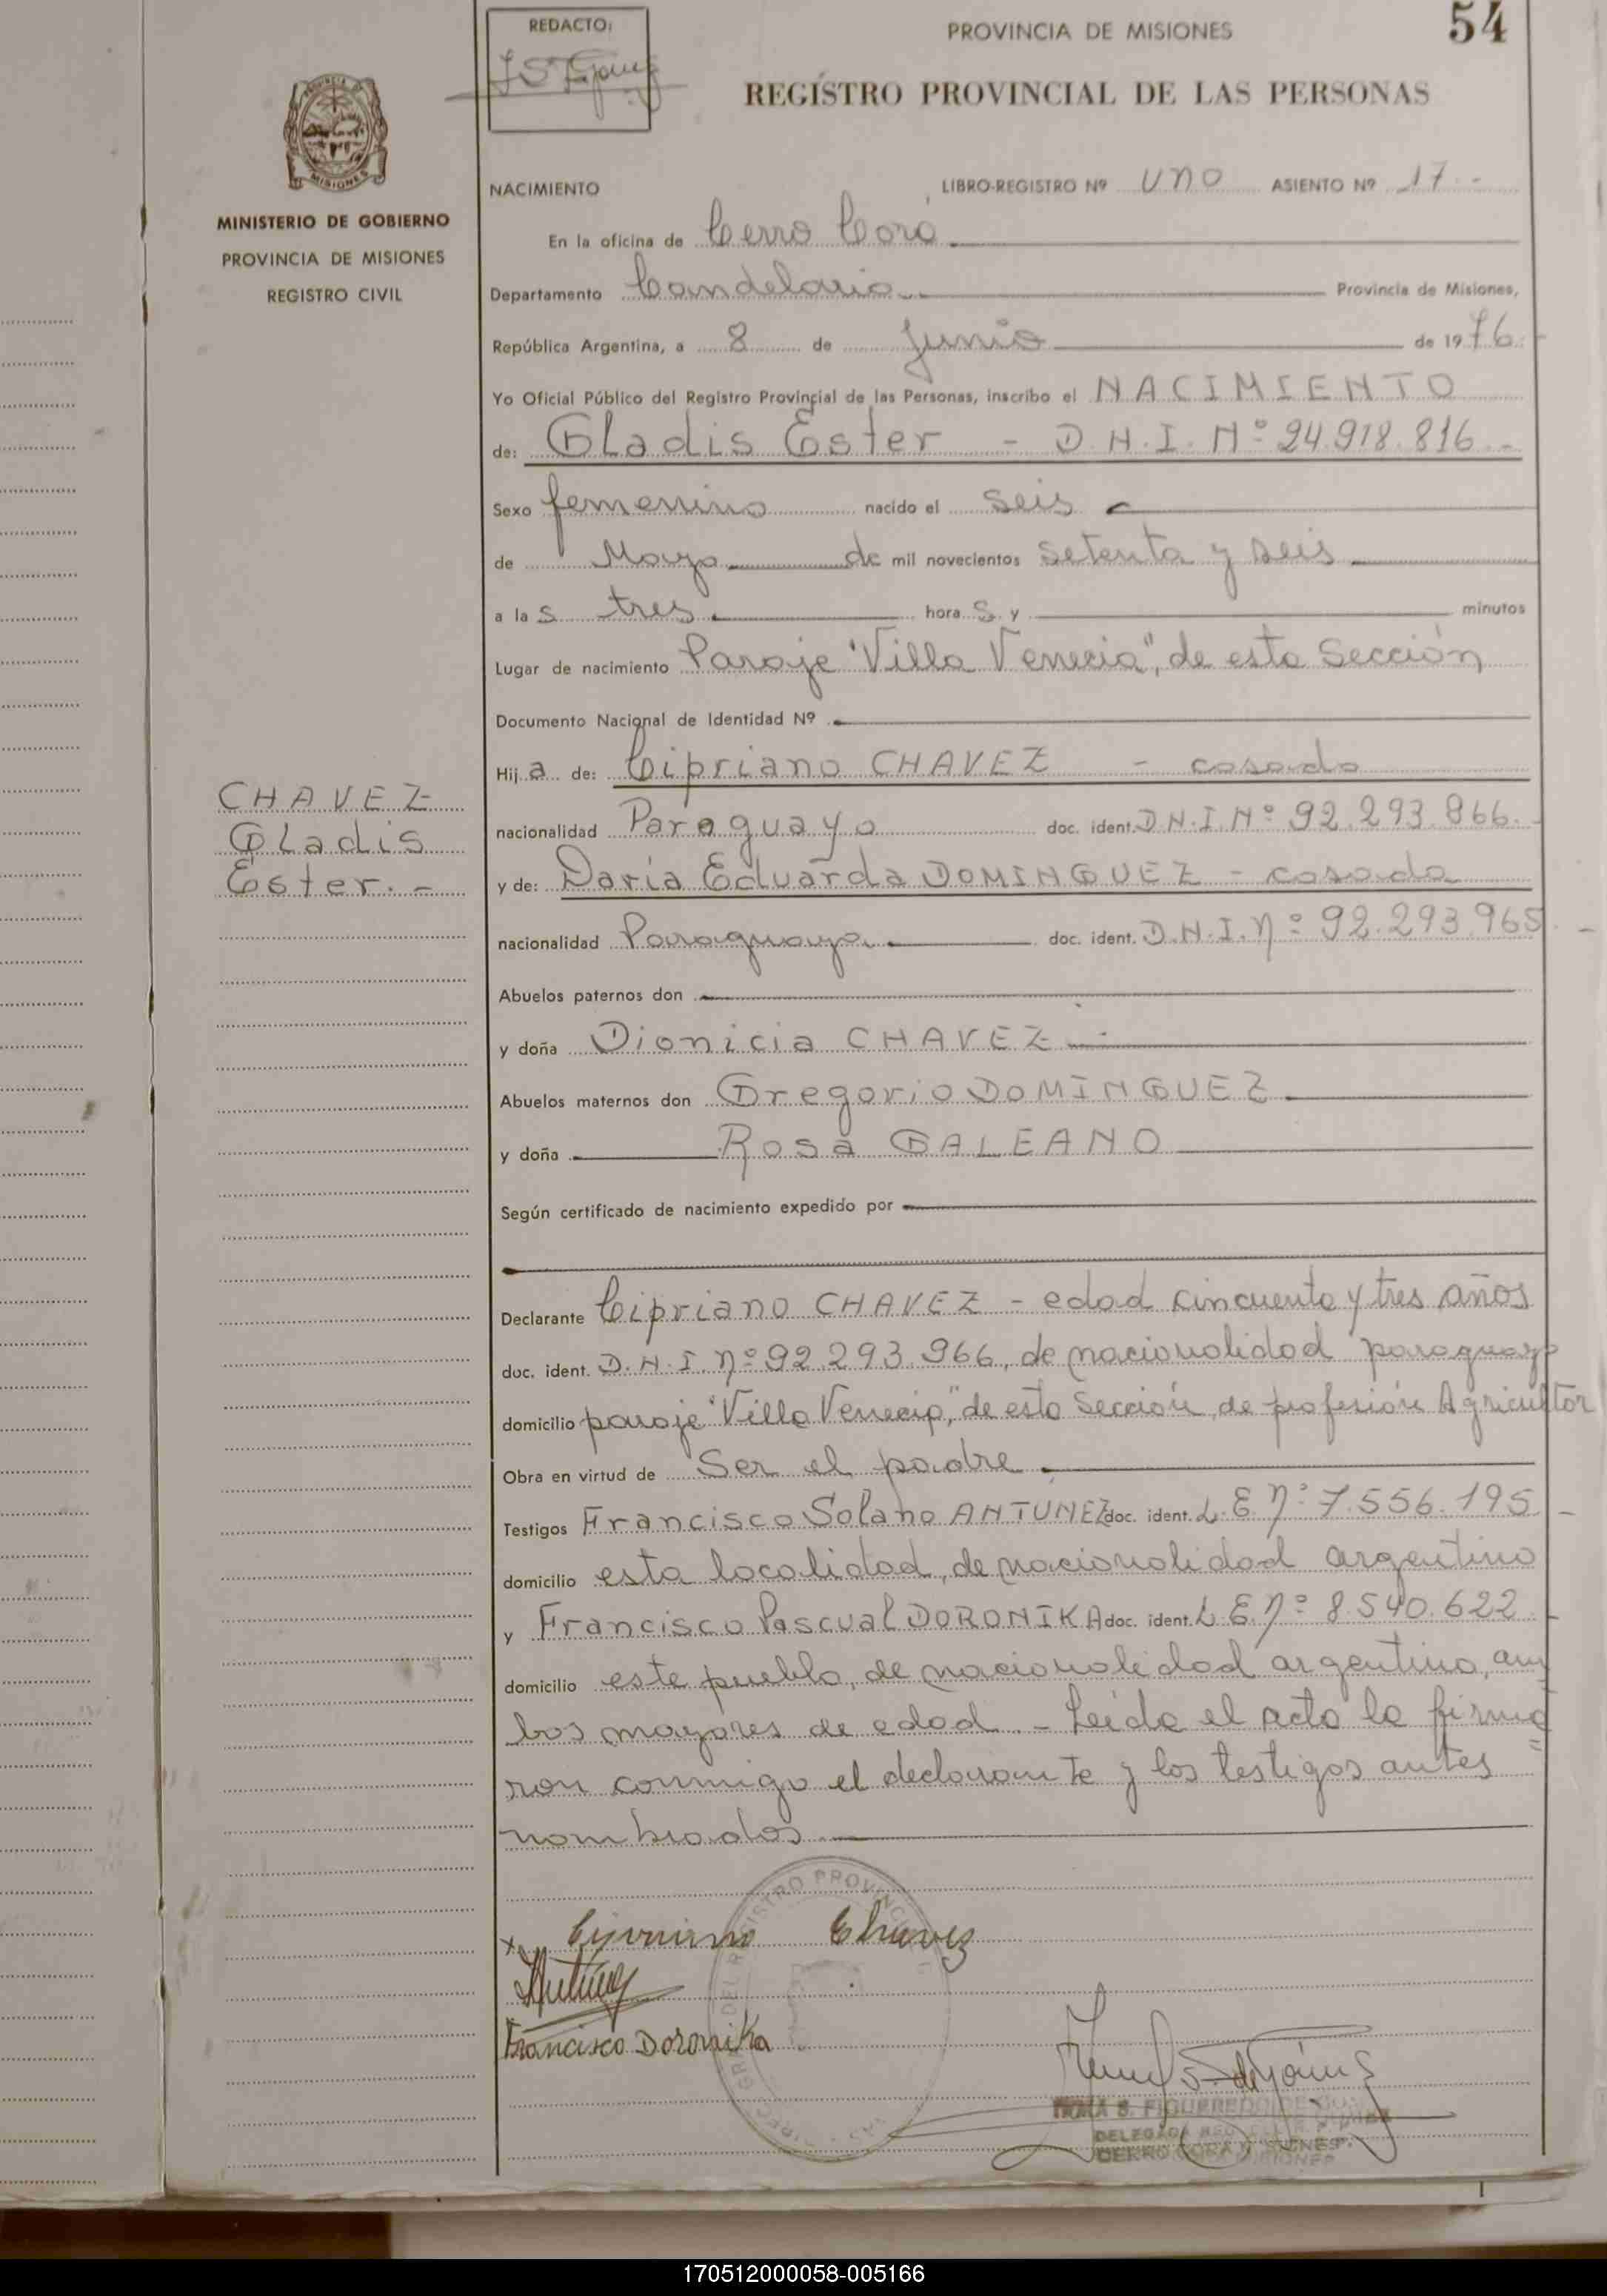 REDACTO:
PROVINCIA DE MISIONES
54
REGISTRO PROVINCIAL DE LAS PERSONAS
PROVINCIA
MISIONES
MINISTERIO DE GOBIERNO
PROVINCIA DE MISIONES
REGISTRO CIVIL
NACIMIENTO
LIBRO-REGISTRO Nº UNO ASIENTO Nº 17.-
En la oficina de Cerro Corá
Departamento Candelaria Provincia de Misiones,
República Argentina, a 8 de Junio de 1976.-
Yo Oficial Público del Registro Provincial de las Personas, inscribo el NACIMIENTO
de: Gladis Ester - D.N.I. Nº 24.918.816.-
Sexo femenino nacido el seis
de Mayo de mil novecientos setenta y seis
a las tres horas y minutos
Lugar de nacimiento Paraje "Villa Venecia", de esta Sección
Documento Nacional de Identidad Nº
Hija de: Cipriano CHAVEZ - casado
nacionalidad Paraguayo doc. ident. D.N.I Nº 92.293.866.-
y de: Daria Eduarda DOMINGUEZ - casada
nacionalidad Paraguaya doc. ident. D.N.I. Nº 92.293.965.-
CHAVEZ
Gladis
Ester.-
Abuelos paternos don
y doña Dionicia CHAVEZ
Abuelos maternos don Gregorio DOMINGUEZ
y doña Rosa GALEANO
Según certificado de nacimiento expedido por
Declarante Cipriano CHAVEZ - edad cincuenta y tres años
doc. ident. D.N.I. Nº 92.293.966, de nacionalidad paraguayo
domicilio paraje "Villa Venecia", de esta Sección, de profesión Agricultor
Obra en virtud de Ser el padre
Testigos Francisco Solano ANTUNEZ doc. ident. L.E Nº 7.556.195.-
domicilio esta localidad, de nacionalidad argentino
y Francisco Pascual DORONIKA doc. ident. L.E. Nº 8.540.622.-
domicilio este pueblo, de nacionalidad argentino, am
bos mayores de edad. - Leída el acta la firma
=
ron conmigo el declarante y los testigos antes
nombrados.
x Cipriano Chavez
Antunez
Francisco Doronika
DEL REGISTRO PROVINCIAL
S. FIGUEREDO DE
DELEGADA
CERRO CORA MISIONES
170512000058-005166